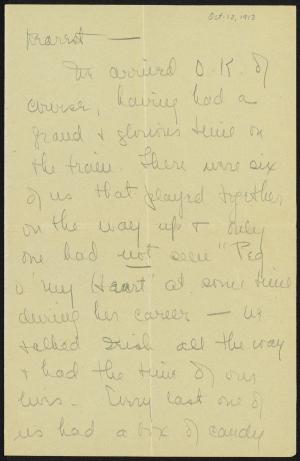 Oct. 12, 1912
Dearest —
We arrived O.K. of
course, having had a
grand & glorious time on
the train. There were six
of us that played together
on the way up & only
one had not seen "Peg
o' my Heart" at some time
during her career — We
talked Irish all the way
& had the time of our
lives — Every last one of
us had a box of candy